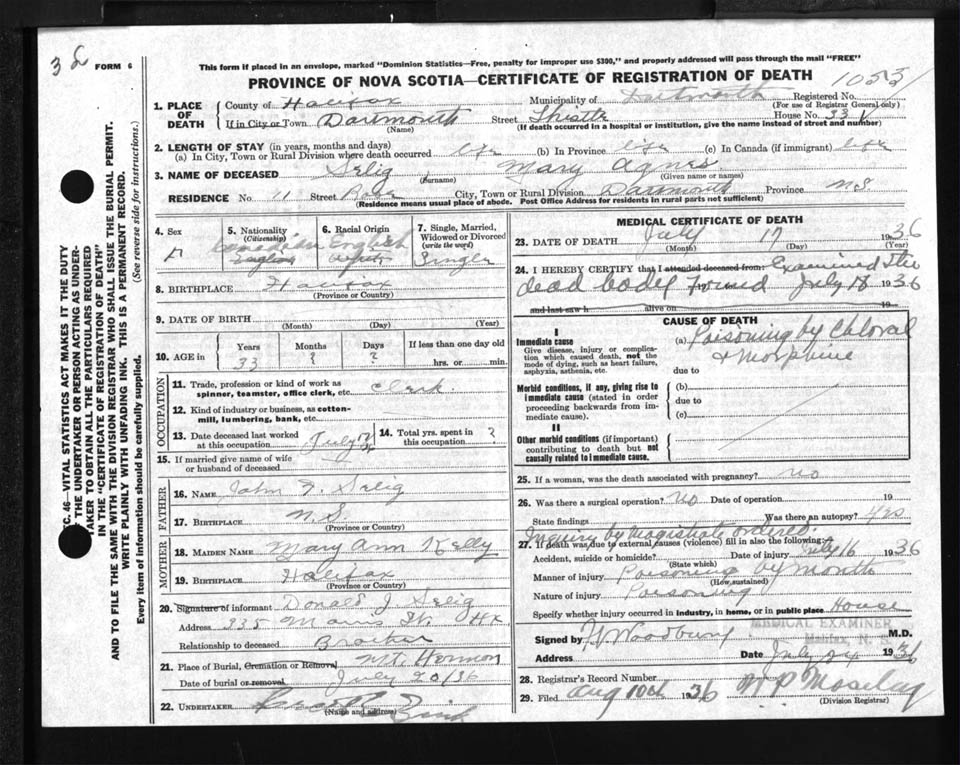 3
FORM 6
This form if placed in an envelope, marked "Dominion Statistics—Free, penalty for improper use $300," and properly addressed will pass through the mail "FREE"
PROVINCE OF NOVA SCOTIA—CERTIFICATE OF REGISTRATION OF DEATH
1053
1. PLACE OF DEATH
County of Halifax Municipality of Dartmouth Registered No.
(For use of Registrar General only)
If in City or Town Dartmouth Street Thistle House No. 33
(Name) (If death occurred in a hospital or institution, give the name instead of street and number)
2. LENGTH OF STAY (in years, months and days)
(a) In City, Town or Rural Division where death occurred life (b) In Province life (c) In Canada (if immigrant) life
3. NAME OF DECEASED Selig Mary Agnes
(Surname) (Given name or names)
RESIDENCE No. 11 Street Rose City, Town or Rural Division Dartmouth Province N.S.
(Residence means usual place of abode. Post Office Address for residents in rural parts not sufficient)
4. Sex
F
5. Nationality (Citizenship)
Canadian
English
6. Racial Origin
English
7. Single, Married, Widowed or Divorced (write the word)
Single
8. BIRTHPLACE Halifax
(Province or Country)
9. DATE OF BIRTH
(Month) (Day) (Year)
10. AGE in
Years Months Days If less than one day old
33 ? ? hrs. or min.
OCCUPATION
11. Trade, profession or kind of work as spinner, teamster, office clerk, etc. Clerk.
12. Kind of industry or business, as cotton-mill, lumbering, bank, etc.
13. Date deceased last worked at this occupation July
14. Total yrs. spent in this occupation ?
15. If married give name of wife or husband of deceased
FATHER
16. NAME John F. Selig
17. BIRTHPLACE N.S.
(Province or Country)
MOTHER
18. MAIDEN NAME Mary Ann Kelly
19. BIRTHPLACE Halifax
(Province or Country)
20. Signature of informant Donald J. Selig
Address 335 Morris St. Hx
Relationship to deceased Brother
21. Place of Burial, Cremation or Removal Mt. Hermon
Date of burial or removal July 20/36
22. UNDERTAKER
(Name and address)
MEDICAL CERTIFICATE OF DEATH
23. DATE OF DEATH July 17 1936
(Month) (Day) (Year)
24. I HEREBY CERTIFY that I attended deceased from: Examined the
dead body found July 18 1936
and last saw h alive on 19
CAUSE OF DEATH
I
Immediate cause
Give disease, injury or complication which caused death, not the mode of dying, such as heart failure, asphyxia, asthenia, etc.
(a) Poisoning by Chloral
& Morphine
due to
Morbid conditions, if any, giving rise to immediate cause (stated in order proceeding backwards from immediate cause).
(b)
due to
(c)
II
Other morbid conditions (if important) contributing to death but not causally related to immediate cause.
25. If a woman, was the death associated with pregnancy? no
26. Was there a surgical operation? no Date of operation 19
State findings Was there an autopsy? yes
Inquiry by Magistrate ordered.
27. If death was due to external causes (violence) fill in also the following:
Accident, suicide or homicide? Date of injury July 16 1936
(State which)
Manner of injury Poisoning by mouth
(How sustained)
Nature of injury Poisoning
Specify whether injury occurred in industry, in home, or in public place House
MEDICAL EXAMINER
Halifax, N. S.
Signed by Woodbury M.D.
Address Date July 24 1936
28. Registrar's Record Number
29. Filed Aug 10th 1936
(Division Registrar)
SEC. 46—VITAL STATISTICS ACT MAKES IT THE DUTY OF THE UNDERTAKER OR PERSON ACTING AS UNDERTAKER TO OBTAIN ALL THE PARTICULARS REQUIRED IN THE "CERTIFICATE OF REGISTRATION OF DEATH"
AND TO FILE THE SAME WITH THE DIVISION REGISTRAR WHO SHALL ISSUE THE BURIAL PERMIT.
WRITE PLAINLY WITH UNFADING INK. THIS IS A PERMANENT RECORD.
Every item of information should be carefully supplied. (See reverse side for instructions.)